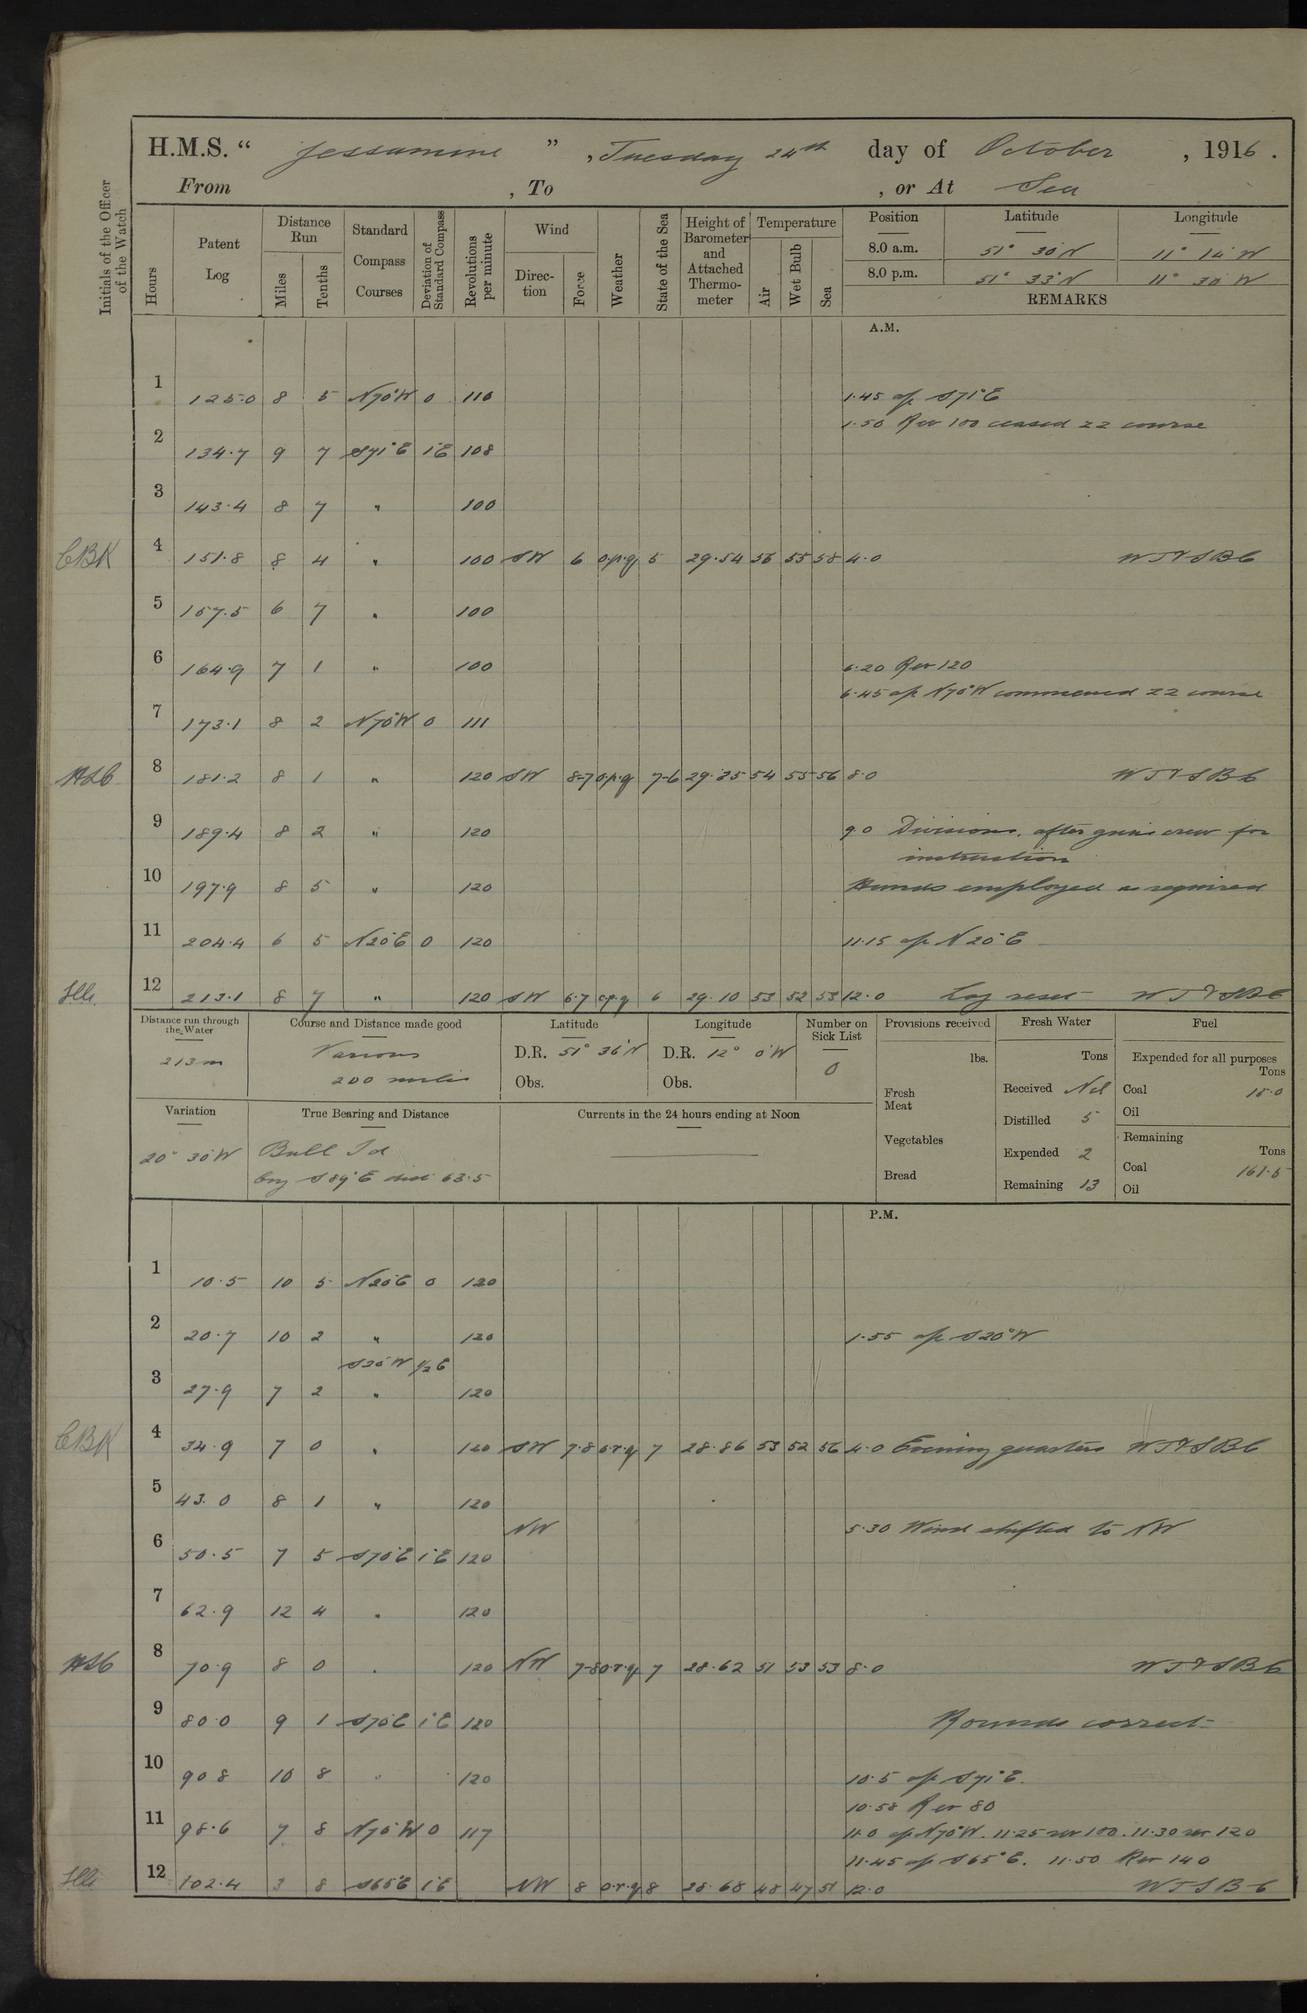 H.M.S. “ Jessamine ” , Tuesday 24th day of October , 1916 .
From , To , or At Sea
Initials of the Officer of the Watch
Hours
Patent Log
Distance Run
Miles
Tenths
Standard Compass Courses
Deviation of Standard Compass
Revolutions per minute
Wind
Direction
Force
Weather
State of the Sea
Height of Barometer and Attached Thermometer
Temperature
Air
Wet Bulb
Sea
Position Latitude Longitude
8.0 a.m. 51° 30' N 11° 14' W
8.0 p.m. 51° 33' N 11° 30' W
REMARKS
A.M.
1 125.0 8 5 N70°W 0 110 1.45 a/c S71°E
1.50 Rev 100 ceased ZZ course
2 134.7 9 7 S71°E 1°E 108
3 143.4 8 7 " 100
CBK 4 151.8 8 4 " 100 SW 6 o.p.q 5 29.54 56 55 58 4.0 WT&SBC
5 157.5 6 7 " 100
6 164.9 7 1 " 100 6.20 Rev 120
6.45 a/c N70°W commenced ZZ course
7 173.1 8 2 N70°W 0 111
8 181.2 8 1 " 120 SW 8-7 o.p.q 7-6 29.25 54 55 56 8.0 WT&SBC
9 189.4 8 2 " 120 9.0 Divisions, after guns crew for
instruction
10 197.9 8 5 " 120 Hands employed as required
11 204.4 6 5 N20°E 0 120 11.15 a/c N20°E
12 213.1 8 7 " 120 SW 6.7 o.p.q 6 29.10 53 52 53 12.0 Log reset WT&SBC
Distance run through the Water
213 m
Course and Distance made good
Various
200 miles
Latitude
D.R. 51° 36' N
Obs.
Longitude
D.R. 12° 0' W
Obs.
Number on Sick List
0
Provisions received
lbs.
Fresh Meat
Vegetables
Bread
Fresh Water
Tons
Received Nil
Distilled 5
Expended 2
Remaining 13
Fuel
Expended for all purposes
Tons
Coal 18.0
Oil
Remaining
Tons
Coal 161.5
Oil
Variation
20° 30' W
True Bearing and Distance
Bull Id
brg S89°E dist 63.5
Currents in the 24 hours ending at Noon
P.M.
1 10.5 10 5 N20°E 0 120
2 20.7 10 2 " 120 1.55 a/c S20°W
S20°W ½E
3 27.9 7 2 " 120
CBK 4 34.9 7 0 " 120 SW 7.8 o.r.q 7 28.86 53 52 56 4.0 Evening quarters WT&SBC
5 43.0 8 1 " 120
NW 5.30 Wind shifted to NW
6 50.5 7 5 S70°E 1°E 120
7 62.9 12 4 " 120
8 70.9 8 0 " 120 NW 7-8 o.r.q 7 28.62 51 53 53 8.0 WT&SBC
9 80.0 9 1 S70°E 1°E 120 Rounds correct
10 90.8 10 8 " 120 10.5 a/c S71°E.
10.58 Rev 80
11 98.6 7 8 N70°W 0 117 11.0 a/c N70°W. 11.25 rev 100. 11.30 rev 120
11.45 a/c S65°E. 11.50 Rev 140
12 102.4 3 8 S65°E 1°E NW 8 o.r.q 8 28.68 48 47 51 12.0 WTSBC